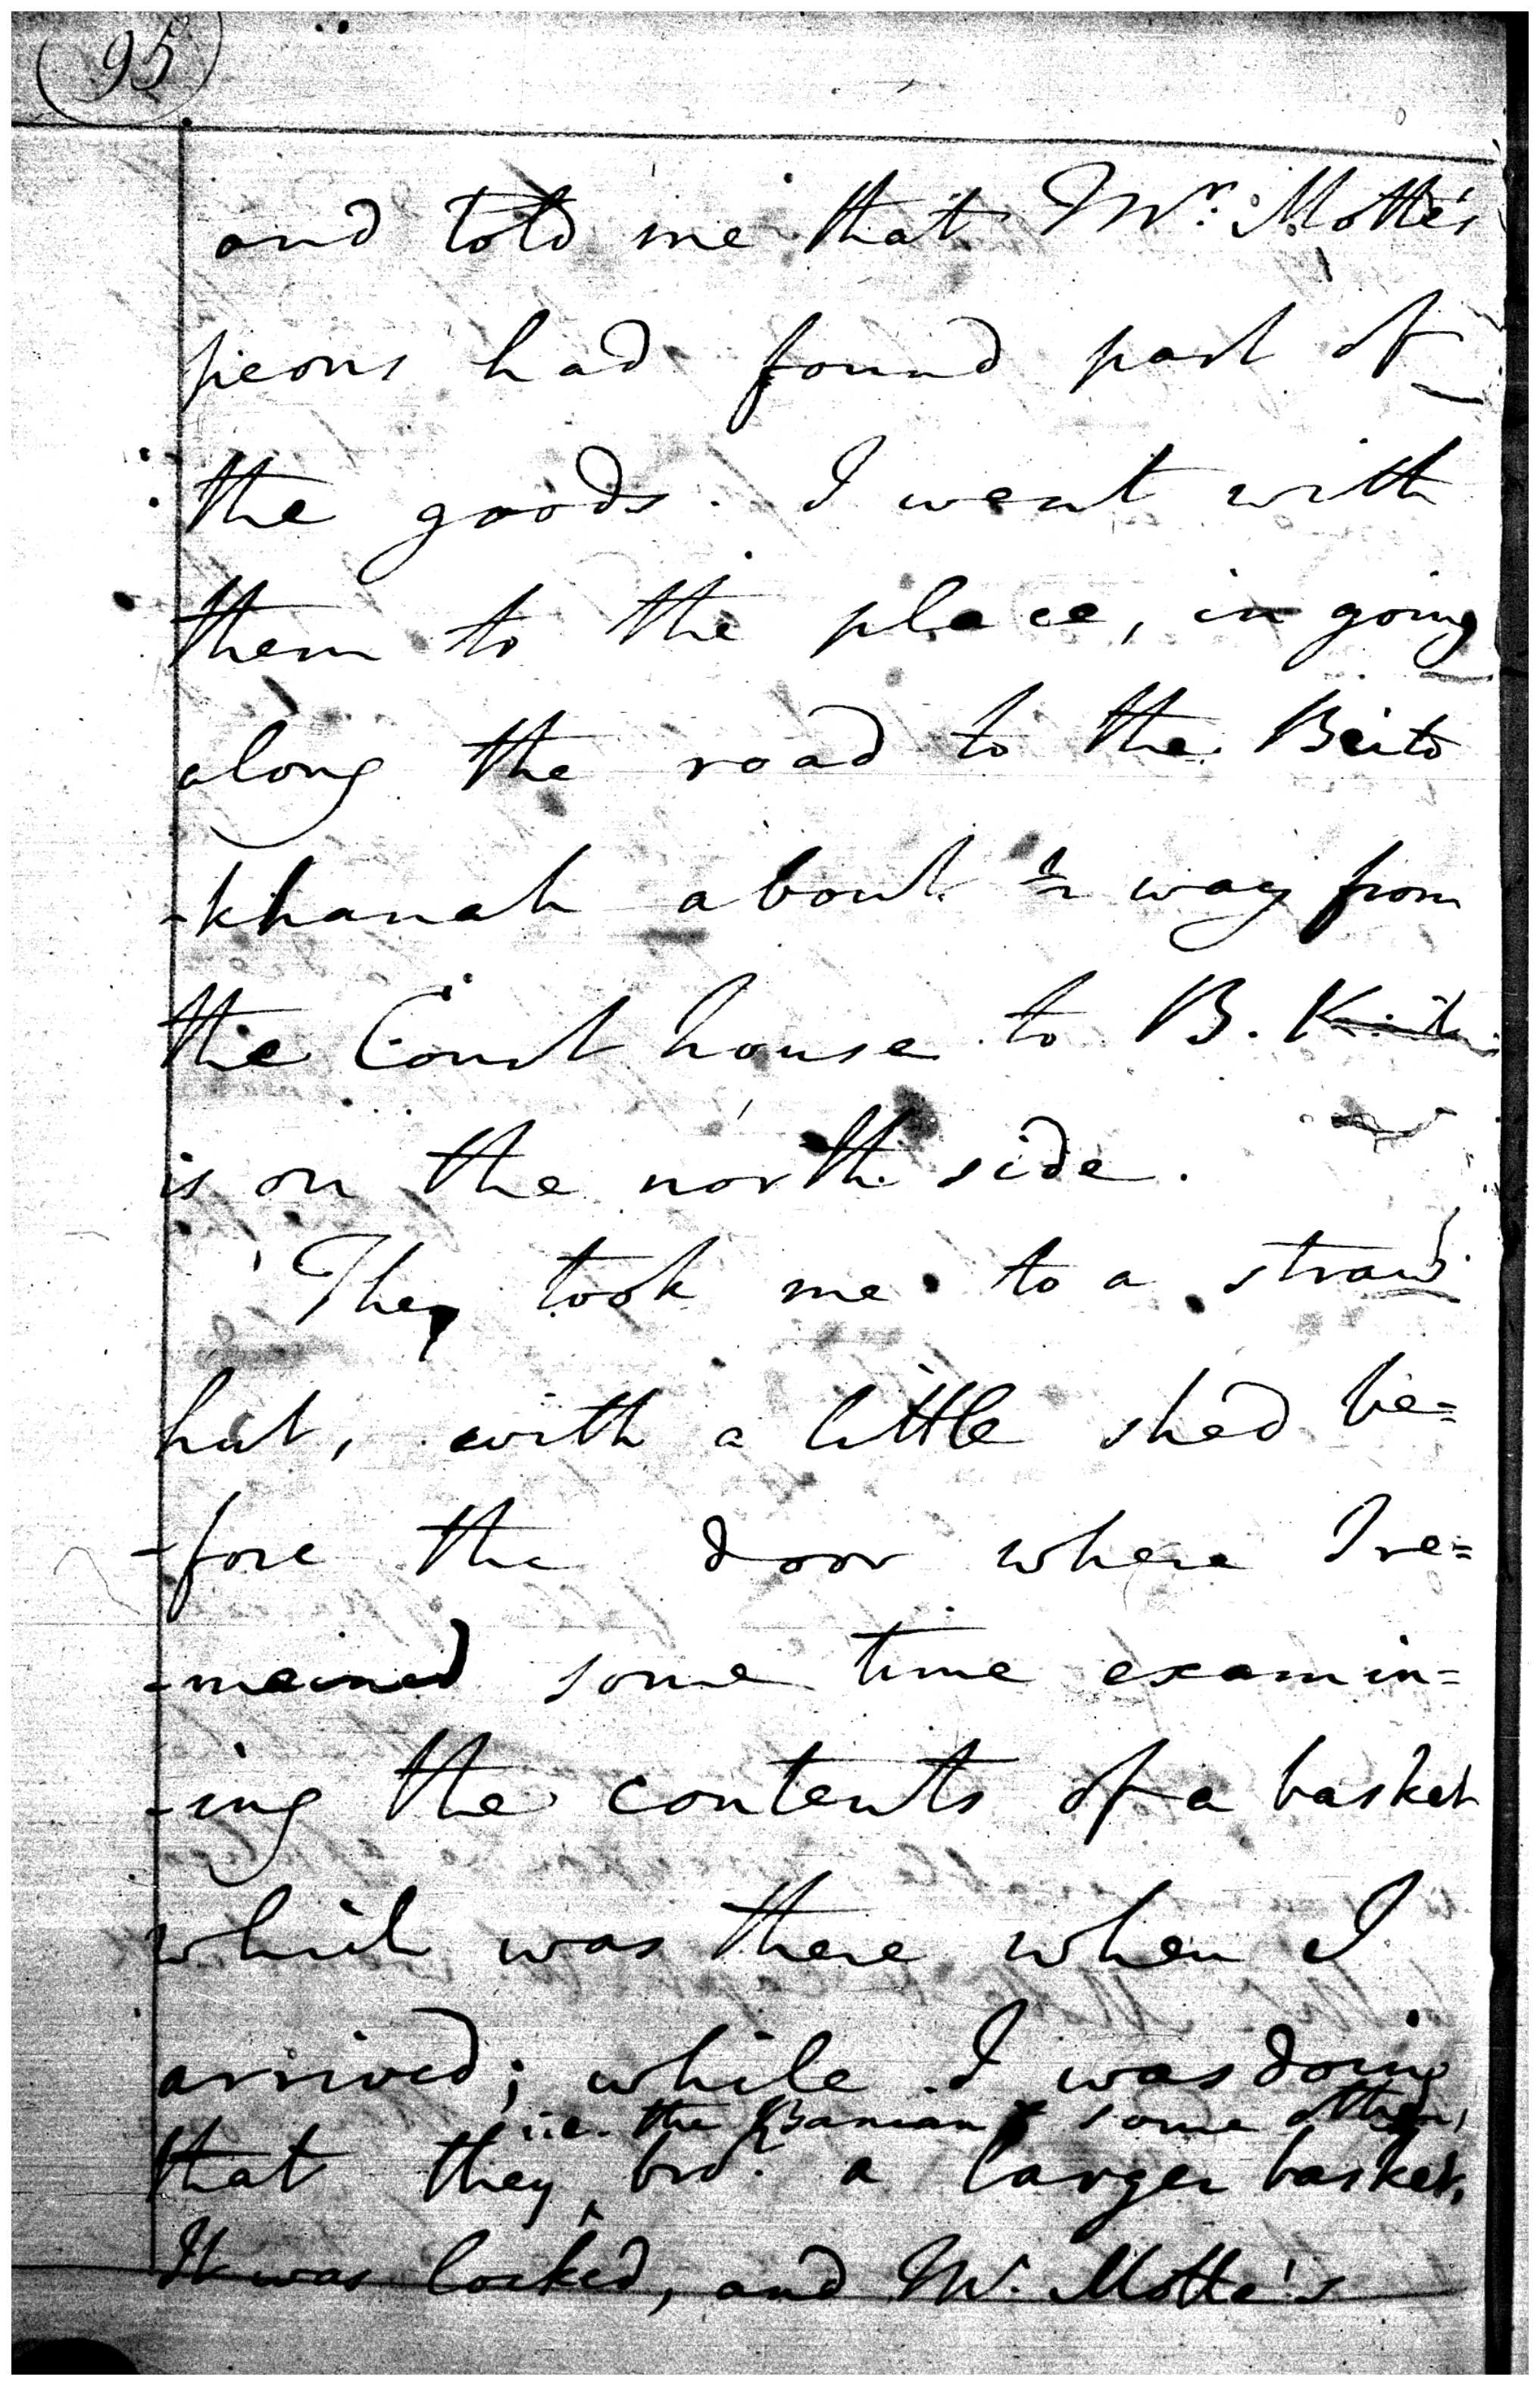 95
and told me that Mr. Motte's
peons had found part of
the goods. I went with
them to the place, in going
along the road to the Beito
-khanah about ½ way from
the Court house to B. K
is on the north side.
They took me to a straw
hut, with a little shed be=
-fore the door where I re=
-mained some time examin=
-ing the contents of a basket
which was there when I
arrived; while I was doing
i.e. the Banian & some others,
that they bro.t a larger basket.
It was locked, and Mr. Motte's